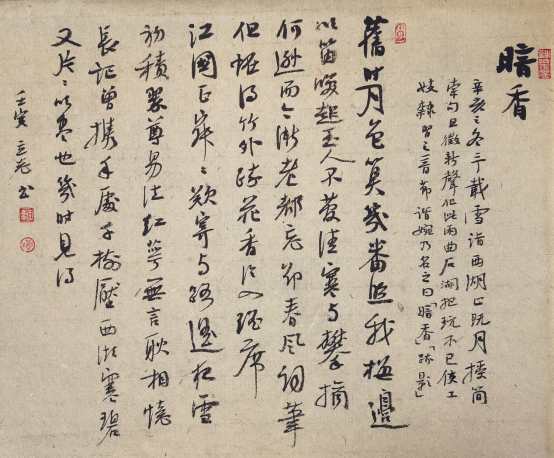 暗香
辛亥之冬予載雪詣西湖止既月授簡
索句且徵新聲作此兩曲石湖把玩不已使工
妓隸習之音節諧婉乃名之曰「暗香」「疎影」
舊時月色算幾番照我梅邊
吹笛喚起玉人不管清寒與攀摘
何遜而今漸老都忘卻春風詞筆
但怪得竹外疎花香冷入瑤席
江國正寂〻歎寄與路遙夜雪
初積翠尊易泣紅萼無言耿相憶
長記曾攜手處千樹壓西湖寒碧
又片〻吹盡也幾時見得
壬寅 書